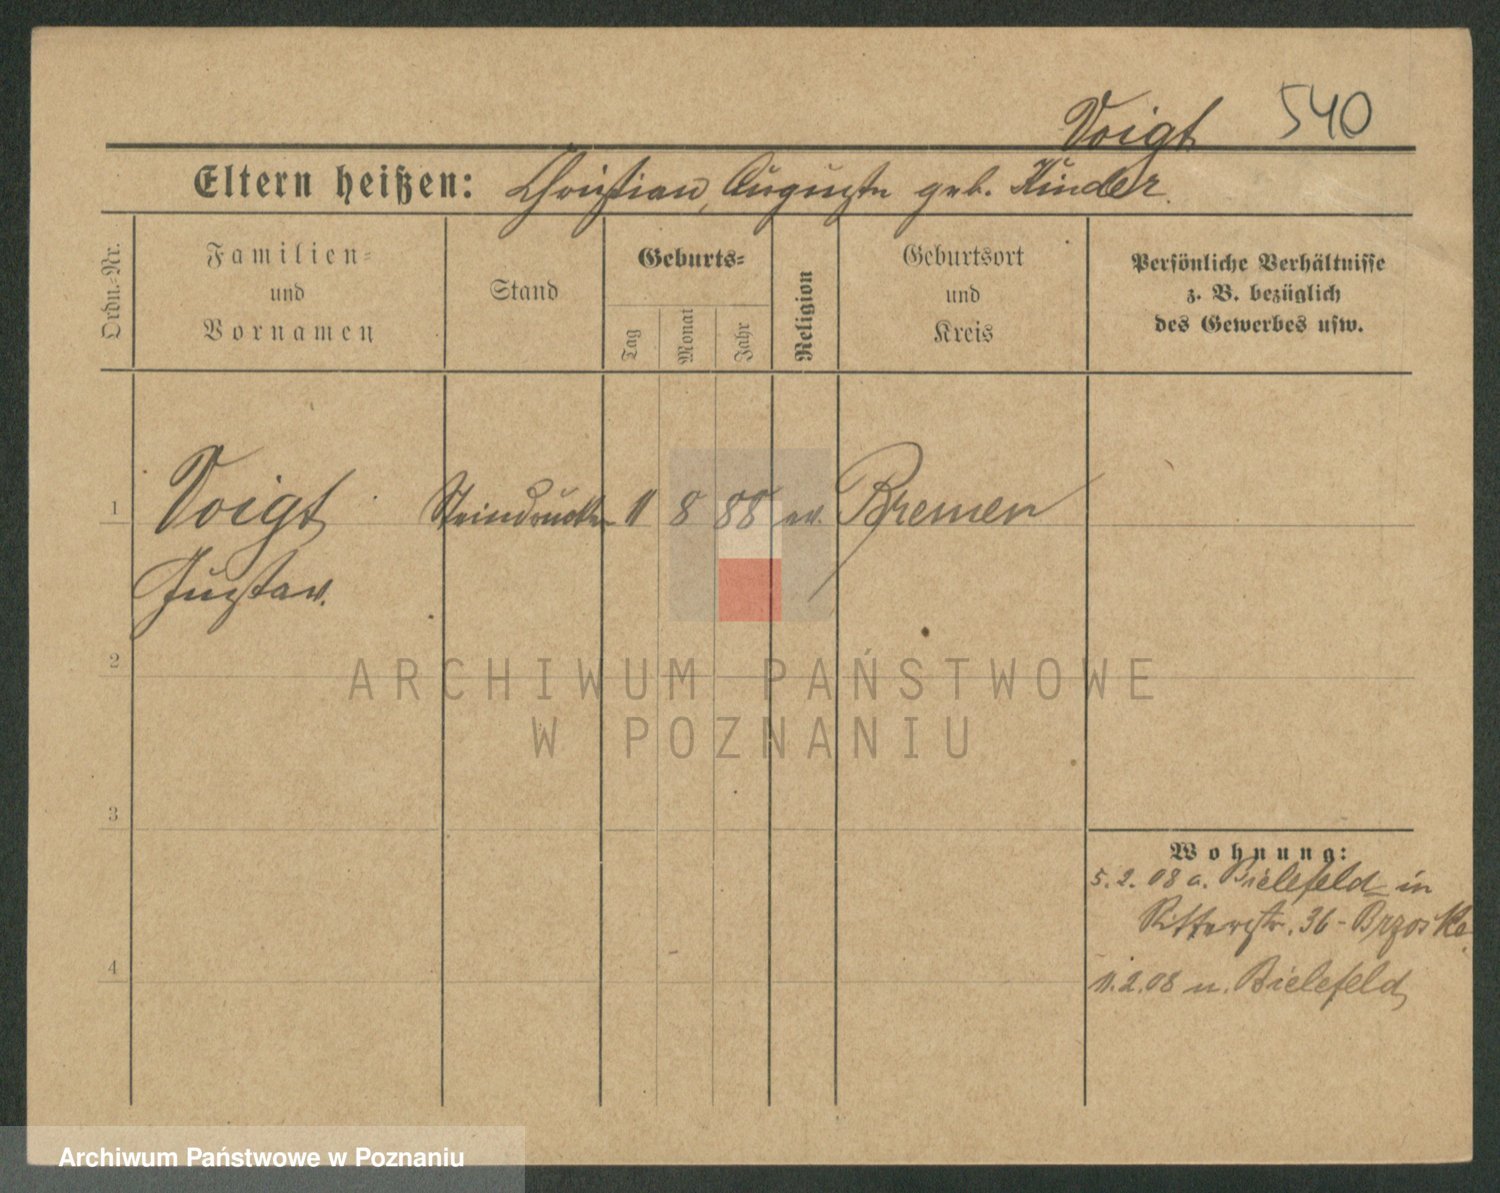 Voigt 540
Eltern heißen: Christian, Auguste geb. Kinder.
Ordn.-Nr.
Familien-
und
Vornamen
Stand
Geburts-
Tag
Monat
Jahr
Religion
Geburtsort
und
Kreis
Persönliche Verhältnisse
z. B. bezüglich
des Gewerbes usw.
1 Voigt Steindrucker 11 8 88 ev. Bremen
Gustav.
2
ARCHIWUM PAŃSTWOWE
W POZNANIU
3
Wohnung:
5.2.08 a. Bielefeld in
Ritterstr. 36 - Brzoske
4
11.2.08 n. Bielefeld
Archiwum Państwowe w Poznaniu